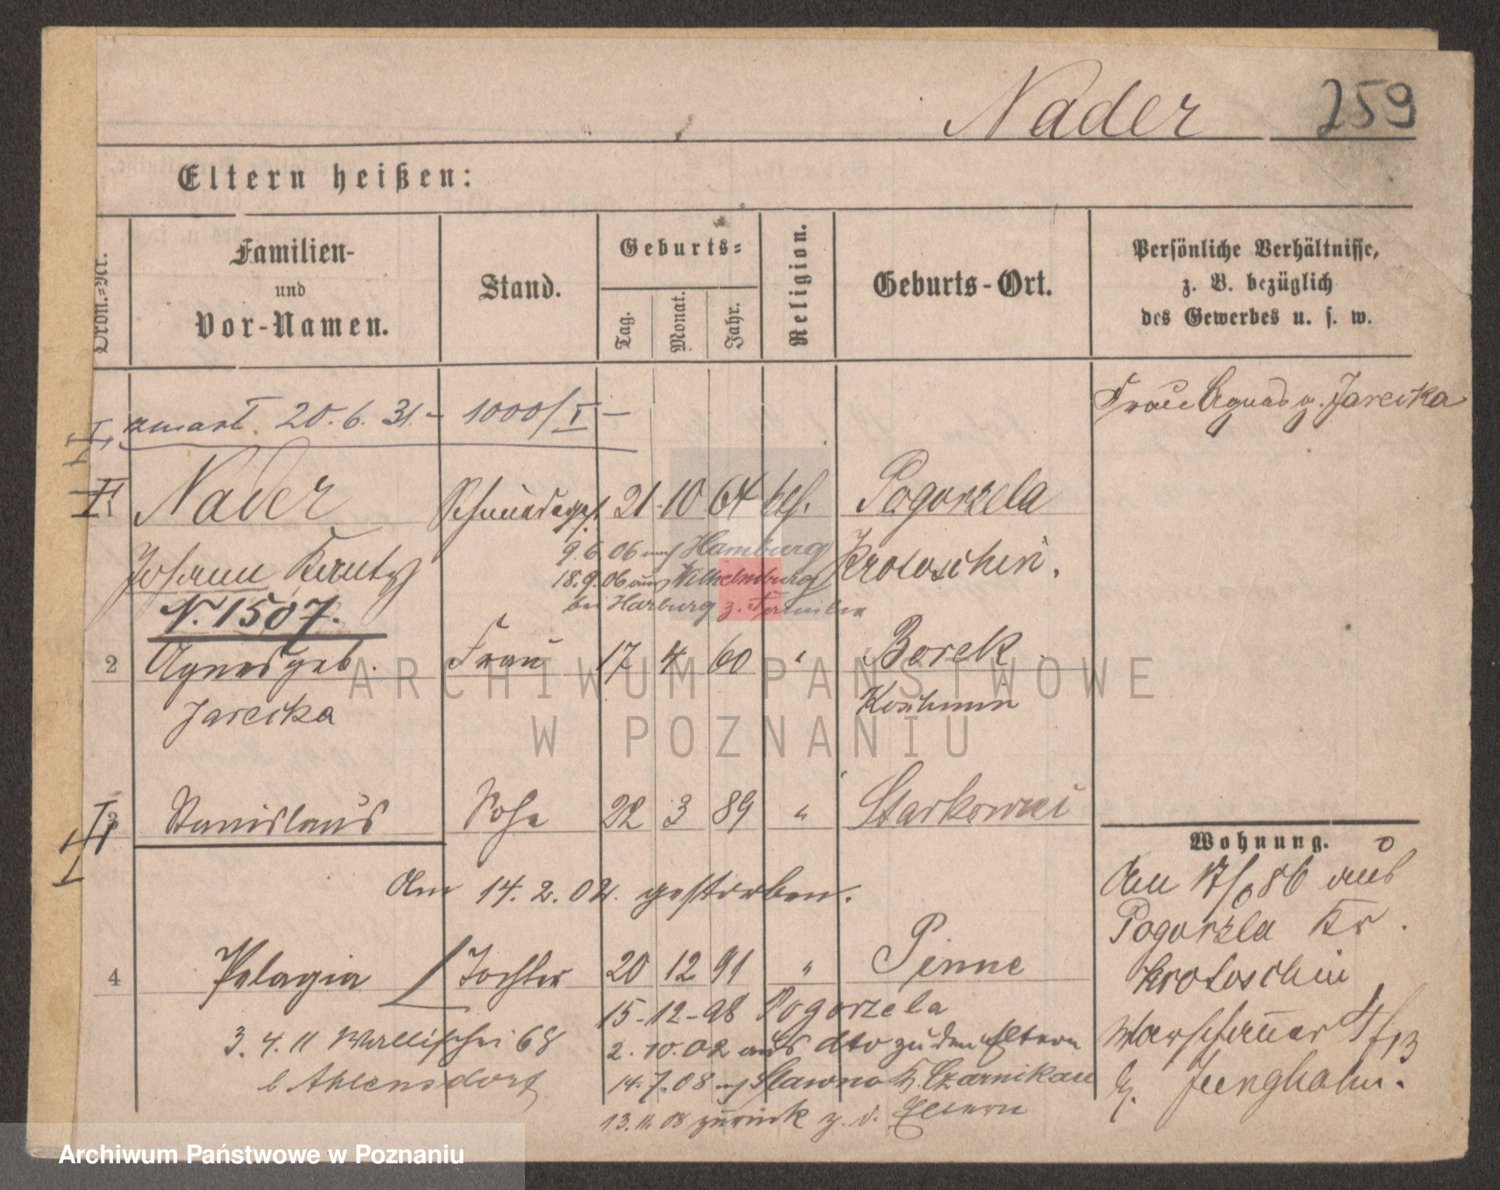 Nader 259
Eltern heißen:
Ordn.-Nr.
Familien-
und
Vor-Namen.
Stand.
Geburts-
Tag.
Monat.
Jahr.
Religion.
Geburts-Ort.
Persönliche Verhältnisse,
z. B. bezüglich
des Gewerbes u. s. w.
20. 6. 31 - 1000/I -
Frau Agnes g. Jarecka
Nader 21 10 64 kth. Pogorzela
Johann Kanty Krotoschin.
9. 6. 06 nach Hamburg
18. 9. 06 aus Wilhelmsburg
bei Harburg z. Familie
N. 1507.
2 Agnes geb. Frau 17 4 60 " Borek
Jarecka Koschmin
3 Stanislaus Sohn 22 3 89 "
Am 14. 2. 02. gestorben.
4 Pelagia Tochter 20 12 91 " Pinne
15-12-98 Pogorzela
3. 4. 11 Wallischei 68 2. 10. 02 aus dto zu den Eltern
b Ahlensdorf 14. 7. 08 n Czarnikau
13. 11. 08 zurück z. d. Eltern
Wohnung.
Am 86 aus
Pogorzela Kr.
Krotoschin
Warschauer 4/13
b. Jungholm.
ARCHIWUM PAŃSTWOWE
W POZNANIU
Archiwum Państwowe w Poznaniu